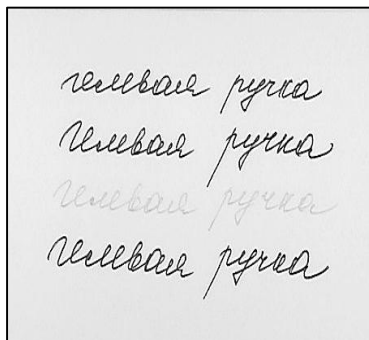 гелевая ручка
гелевая ручка
гелевая ручка
гелевая ручка